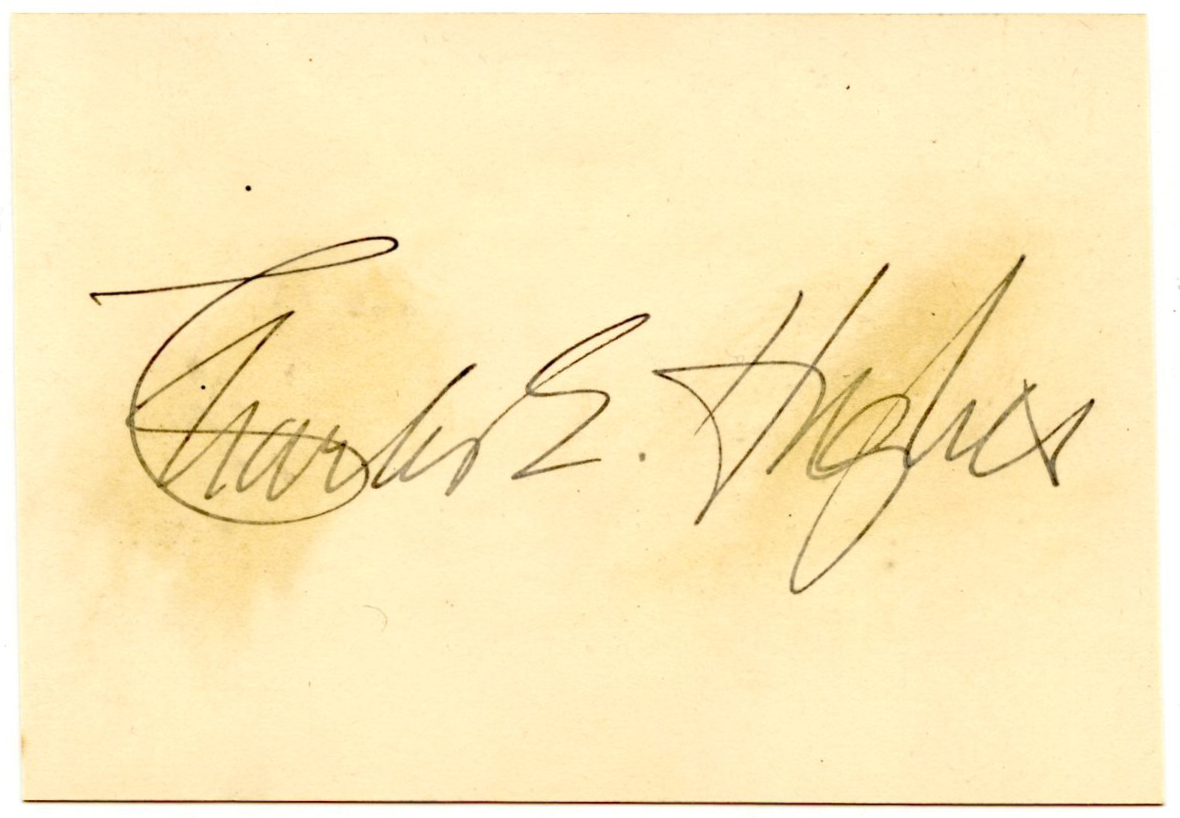 Charles E. Hughes